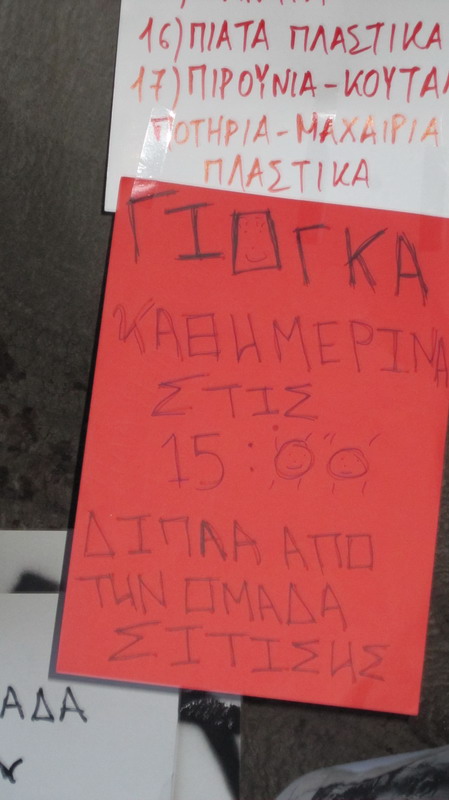 16) ΠΙΑΤΑ ΠΛΑΣΤΙΚΑ
17) ΠΙΡΟΥΝΙΑ-ΚΟΥΤΑΛ
ΠΟΤΗΡΙΑ-ΜΑΧΑΙΡΙΑ
ΠΛΑΣΤΙΚΑ
ΓΙΟΓΚΑ
ΚΑΘΗΜΕΡΙΝΑ
ΣΤΙΣ
15:00
ΔΙΠΛΑ ΑΠΟ
ΤΗΝ ΟΜΑΔΑ
ΣΙΤΙΣΗΣ
ΑΔΑ